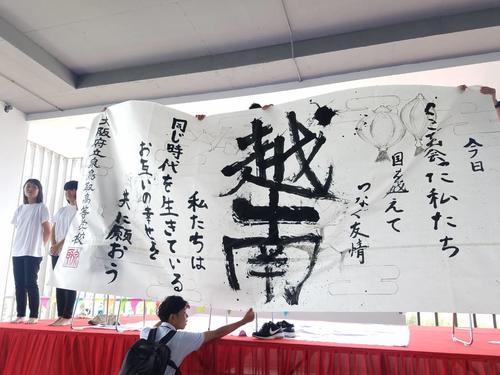 今日
出会った私たち
国を越えて
つなぐ友情
越南
私たちは
同じ時代を生きている
お互いの幸せを
共に願おう
大阪府立泉鳥取高等学校